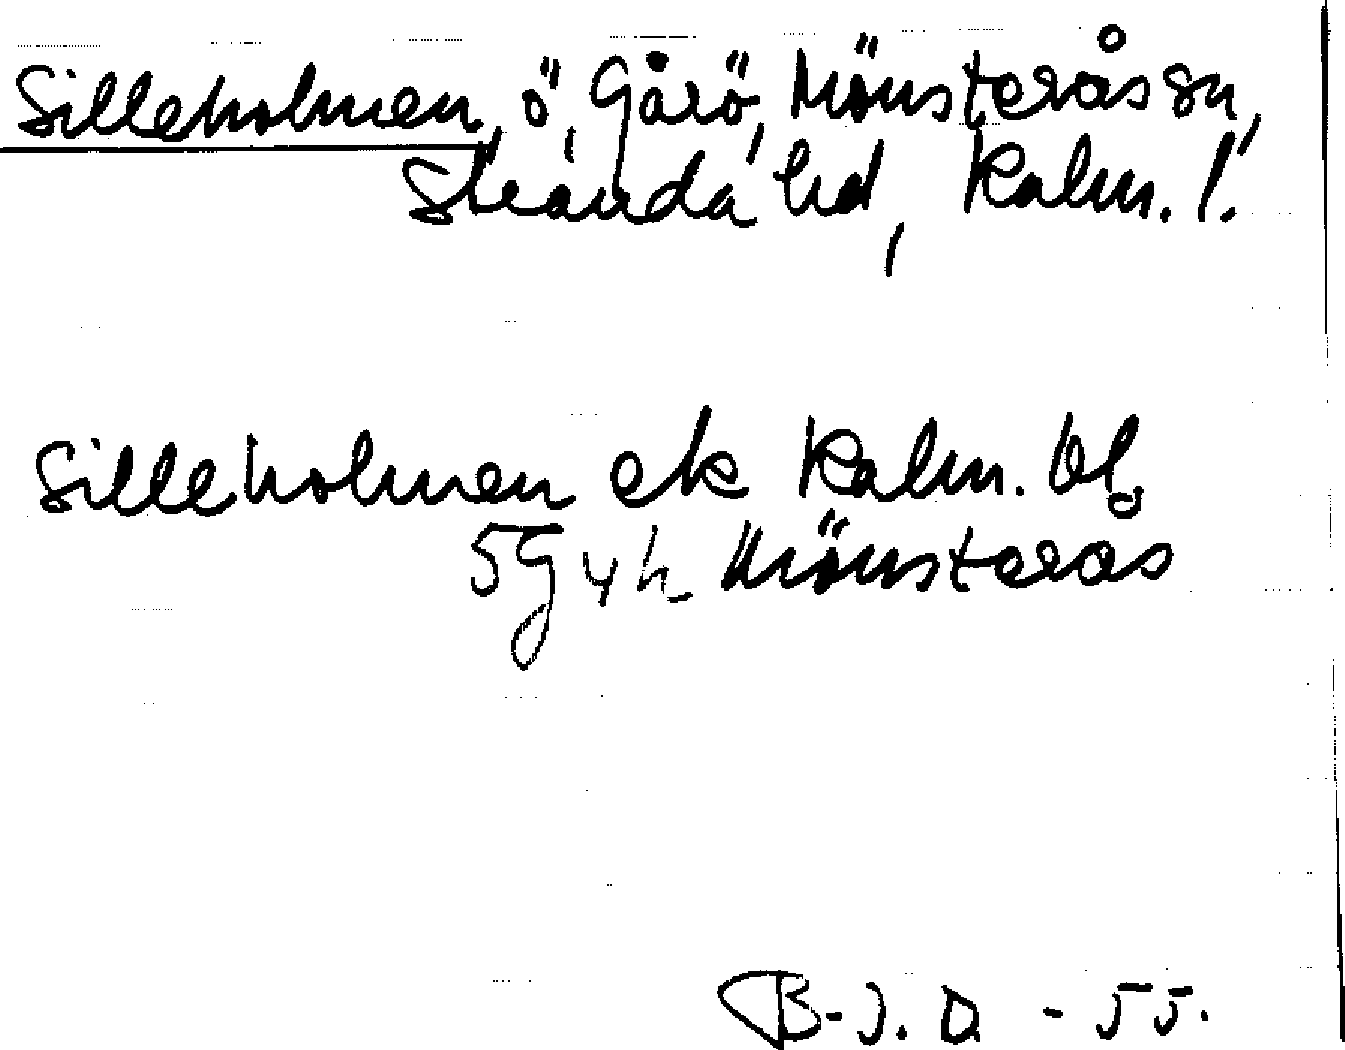 Silleholmen, ö, Gårö, Mönsterås sn,
Stranda hd, Kalm. l.
Silleholmen ek Kalm. bl.
5G 4h Mönsterås
B-J. D. - 55.